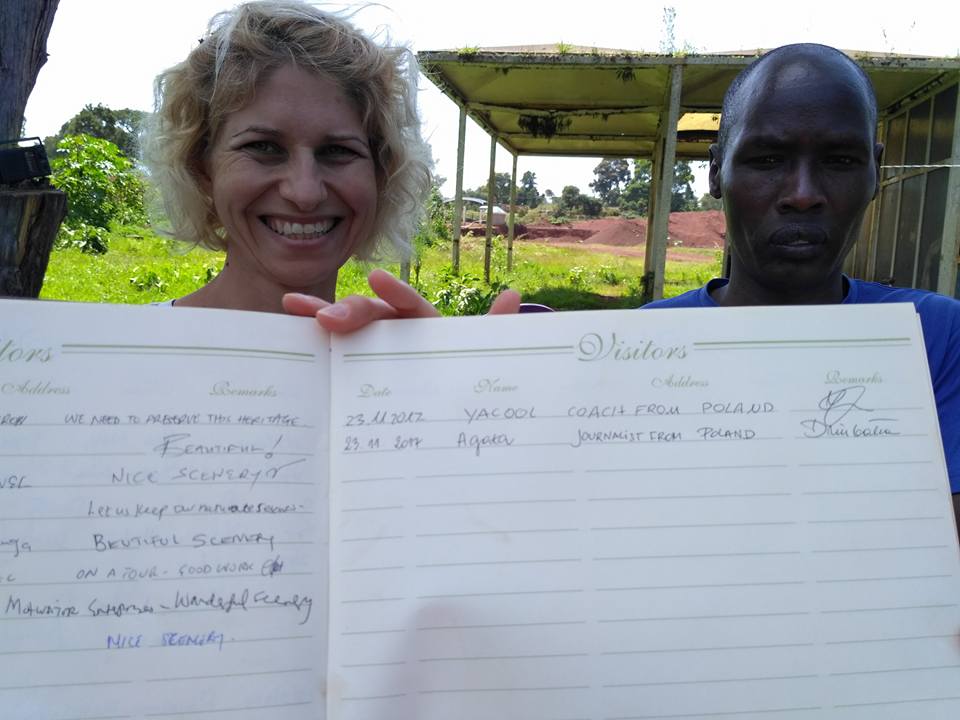 Visitors
Address Remarks
WE NEED TO PRESERVE THIS HERITAGE
BEAUTIFUL!
NICE SCENERY
Let us keep our
BEUTIFUL SCENERY
ON A TOUR - GOOD WORK
Wonderful Scenery
NICE SCENERY.
Visitors
Date Name Address Remarks
23.11.2017 YACOOL COACH FROM POLAND
23 11 2017 Agata JOURNALIST FROM POLAND